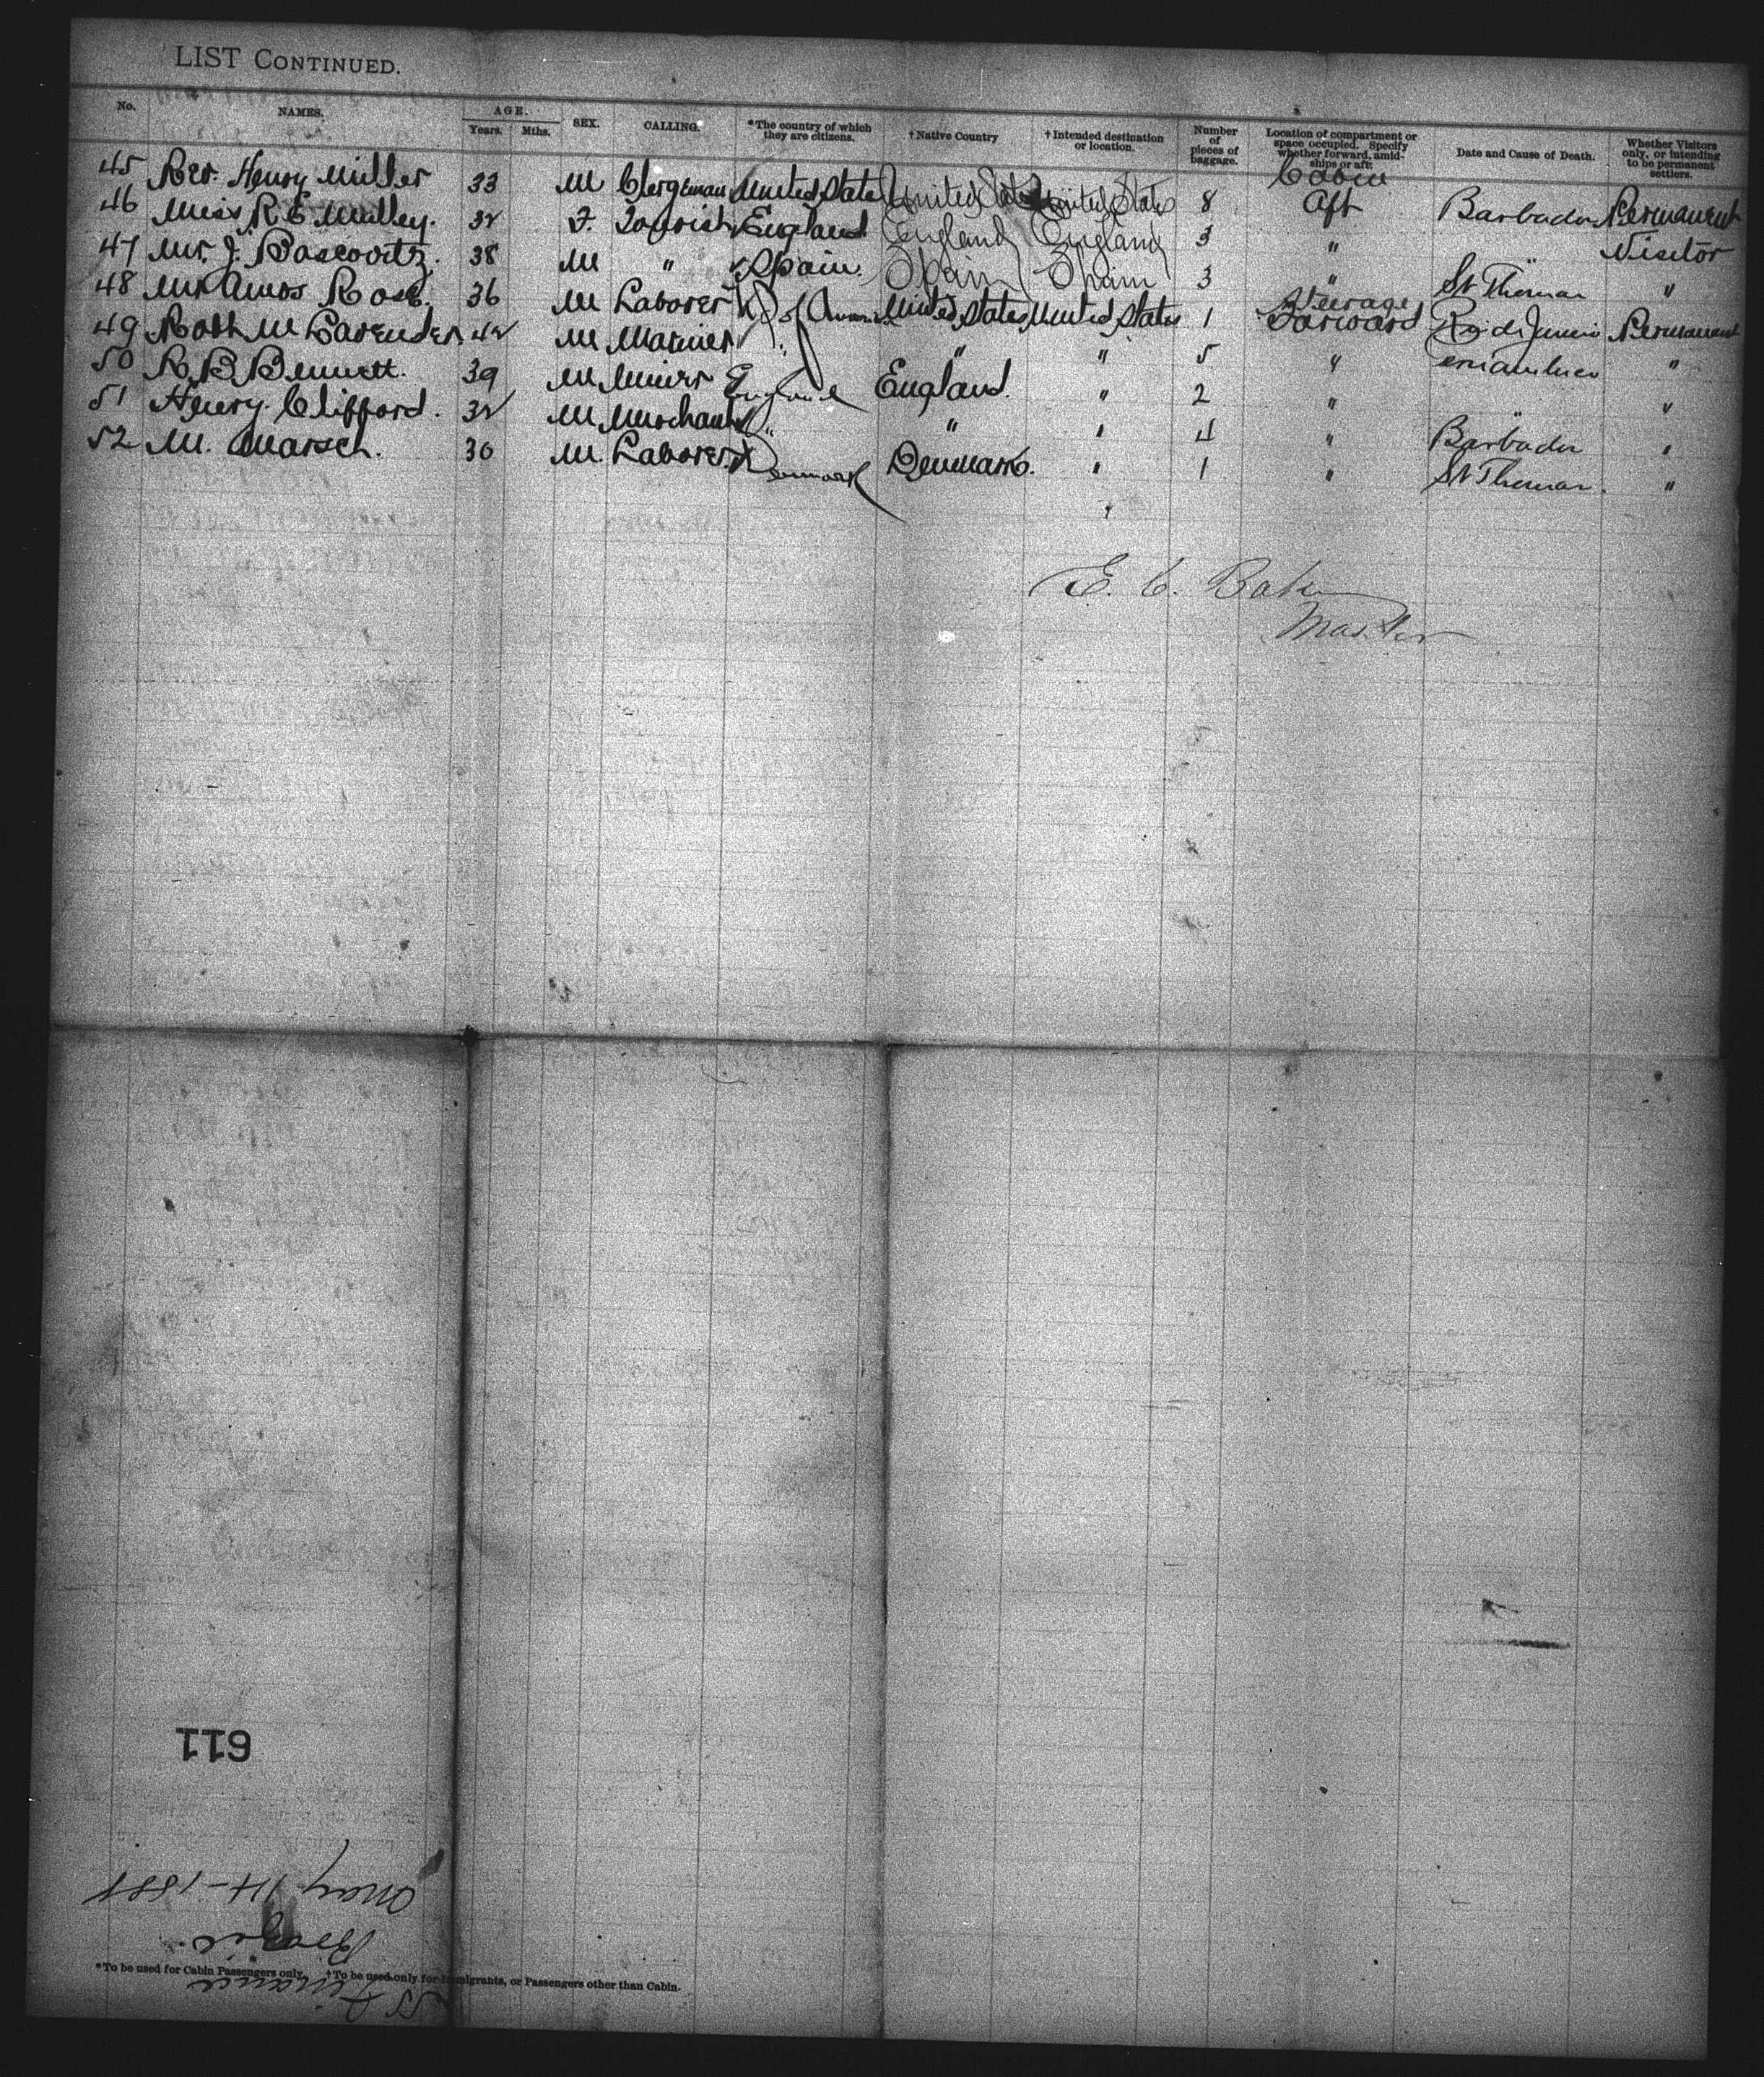 LIST CONTINUED.
No. NAMES. AGE. Years. Mths. SEX. CALLING. *The country of which they are citizens. †Native Country †Intended destination or location. Number of pieces of baggage. Location of compartment or space occupied. Specify whether forward, amidships or aft. Date and Cause of Death. Whether Visitors only, or intending to be permanent settlers.
Cabin
45 Rev. Henry Miller 33 M Clergman United State United States United States 8 Aft Barbados Permanent
46 Miss R E Mulley. 32 F. Tourist England England England 3 " " Visitor
47 Mr. J. Bascovitz. 38 M " Spain. Spain Spain 3 " St Thomas "
Steerage
48 Mr Amos Rose. 36 M Laborer US of America United States United States 1 Forward Rio di Janeiro Permanent
49 Robt M Cavender 42 M Mariner " " " 5 " "
50 R B Bennett. 39 M Miner England England. " 2 " " "
51 Henry Clifford. 32 M Merchant " " " 4 " Barbados "
52 M. Marsch. 30 M. Laborer Denmark Denmark. " 1 " St Thomas. "
"
E. C. Baker
Master
611
May 14-1888
Brazil.
SS Finance
*To be used for Cabin Passengers only. †To be used only for Immigrants, or Passengers other than Cabin.